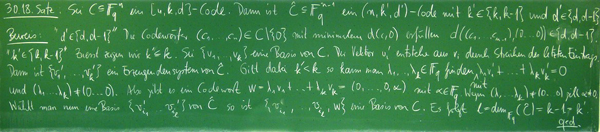 30.18. Satz. Sei C ⊆ F_q^n ein [n,k,d]-Code. Dann ist Ĉ ⊆ F_q^{n-1} ein (n, k', d')-Code mit k' ∈ {k, k-1} und d' ∈ {d, d-1}
Beweis: "d' ∈ {d, d-1}" Da Codewörter (c_1, ..., c_n) ∈ C\{0} mit minimalem d(c,0) erfüllen d((c_1, ..., c_{n-1}), (0...0)) ∈ {d, d-1}
"k' ∈ {k, k-1}" Zuerst zeigen wir k' ≤ k. Sei {v_1, ..., v_k} eine Basis von C. Der Vektor v_i' entstehe aus v_i durch Streichen des letzten Eintrags.
Dann ist {v_1', ..., v_k'} ein Erzeugendensystem von Ĉ. Gilt dabei k' < k so kann man λ_1, ..., λ_k ∈ F_q finden, λ_1 v_1' + ... + λ_k v_k' = 0
und (λ_1 ... λ_k) ≠ (0...0). Also gibt es ein Codewort w = λ_1 v_1 + ... + λ_k v_k = (0, ..., 0, α) mit α ∈ F_q, wegen (λ_1 ... λ_k) ≠ (0...0) gilt α ≠ 0.
Wählt man nun eine Basis {v_{i_1}', ..., v_{i_l}'} von Ĉ so ist {v_{i_1}, ..., v_{i_l}, w} eine Basis von C. Es folgt l = dim_{F_q}(Ĉ) = k - 1 = k'
qed